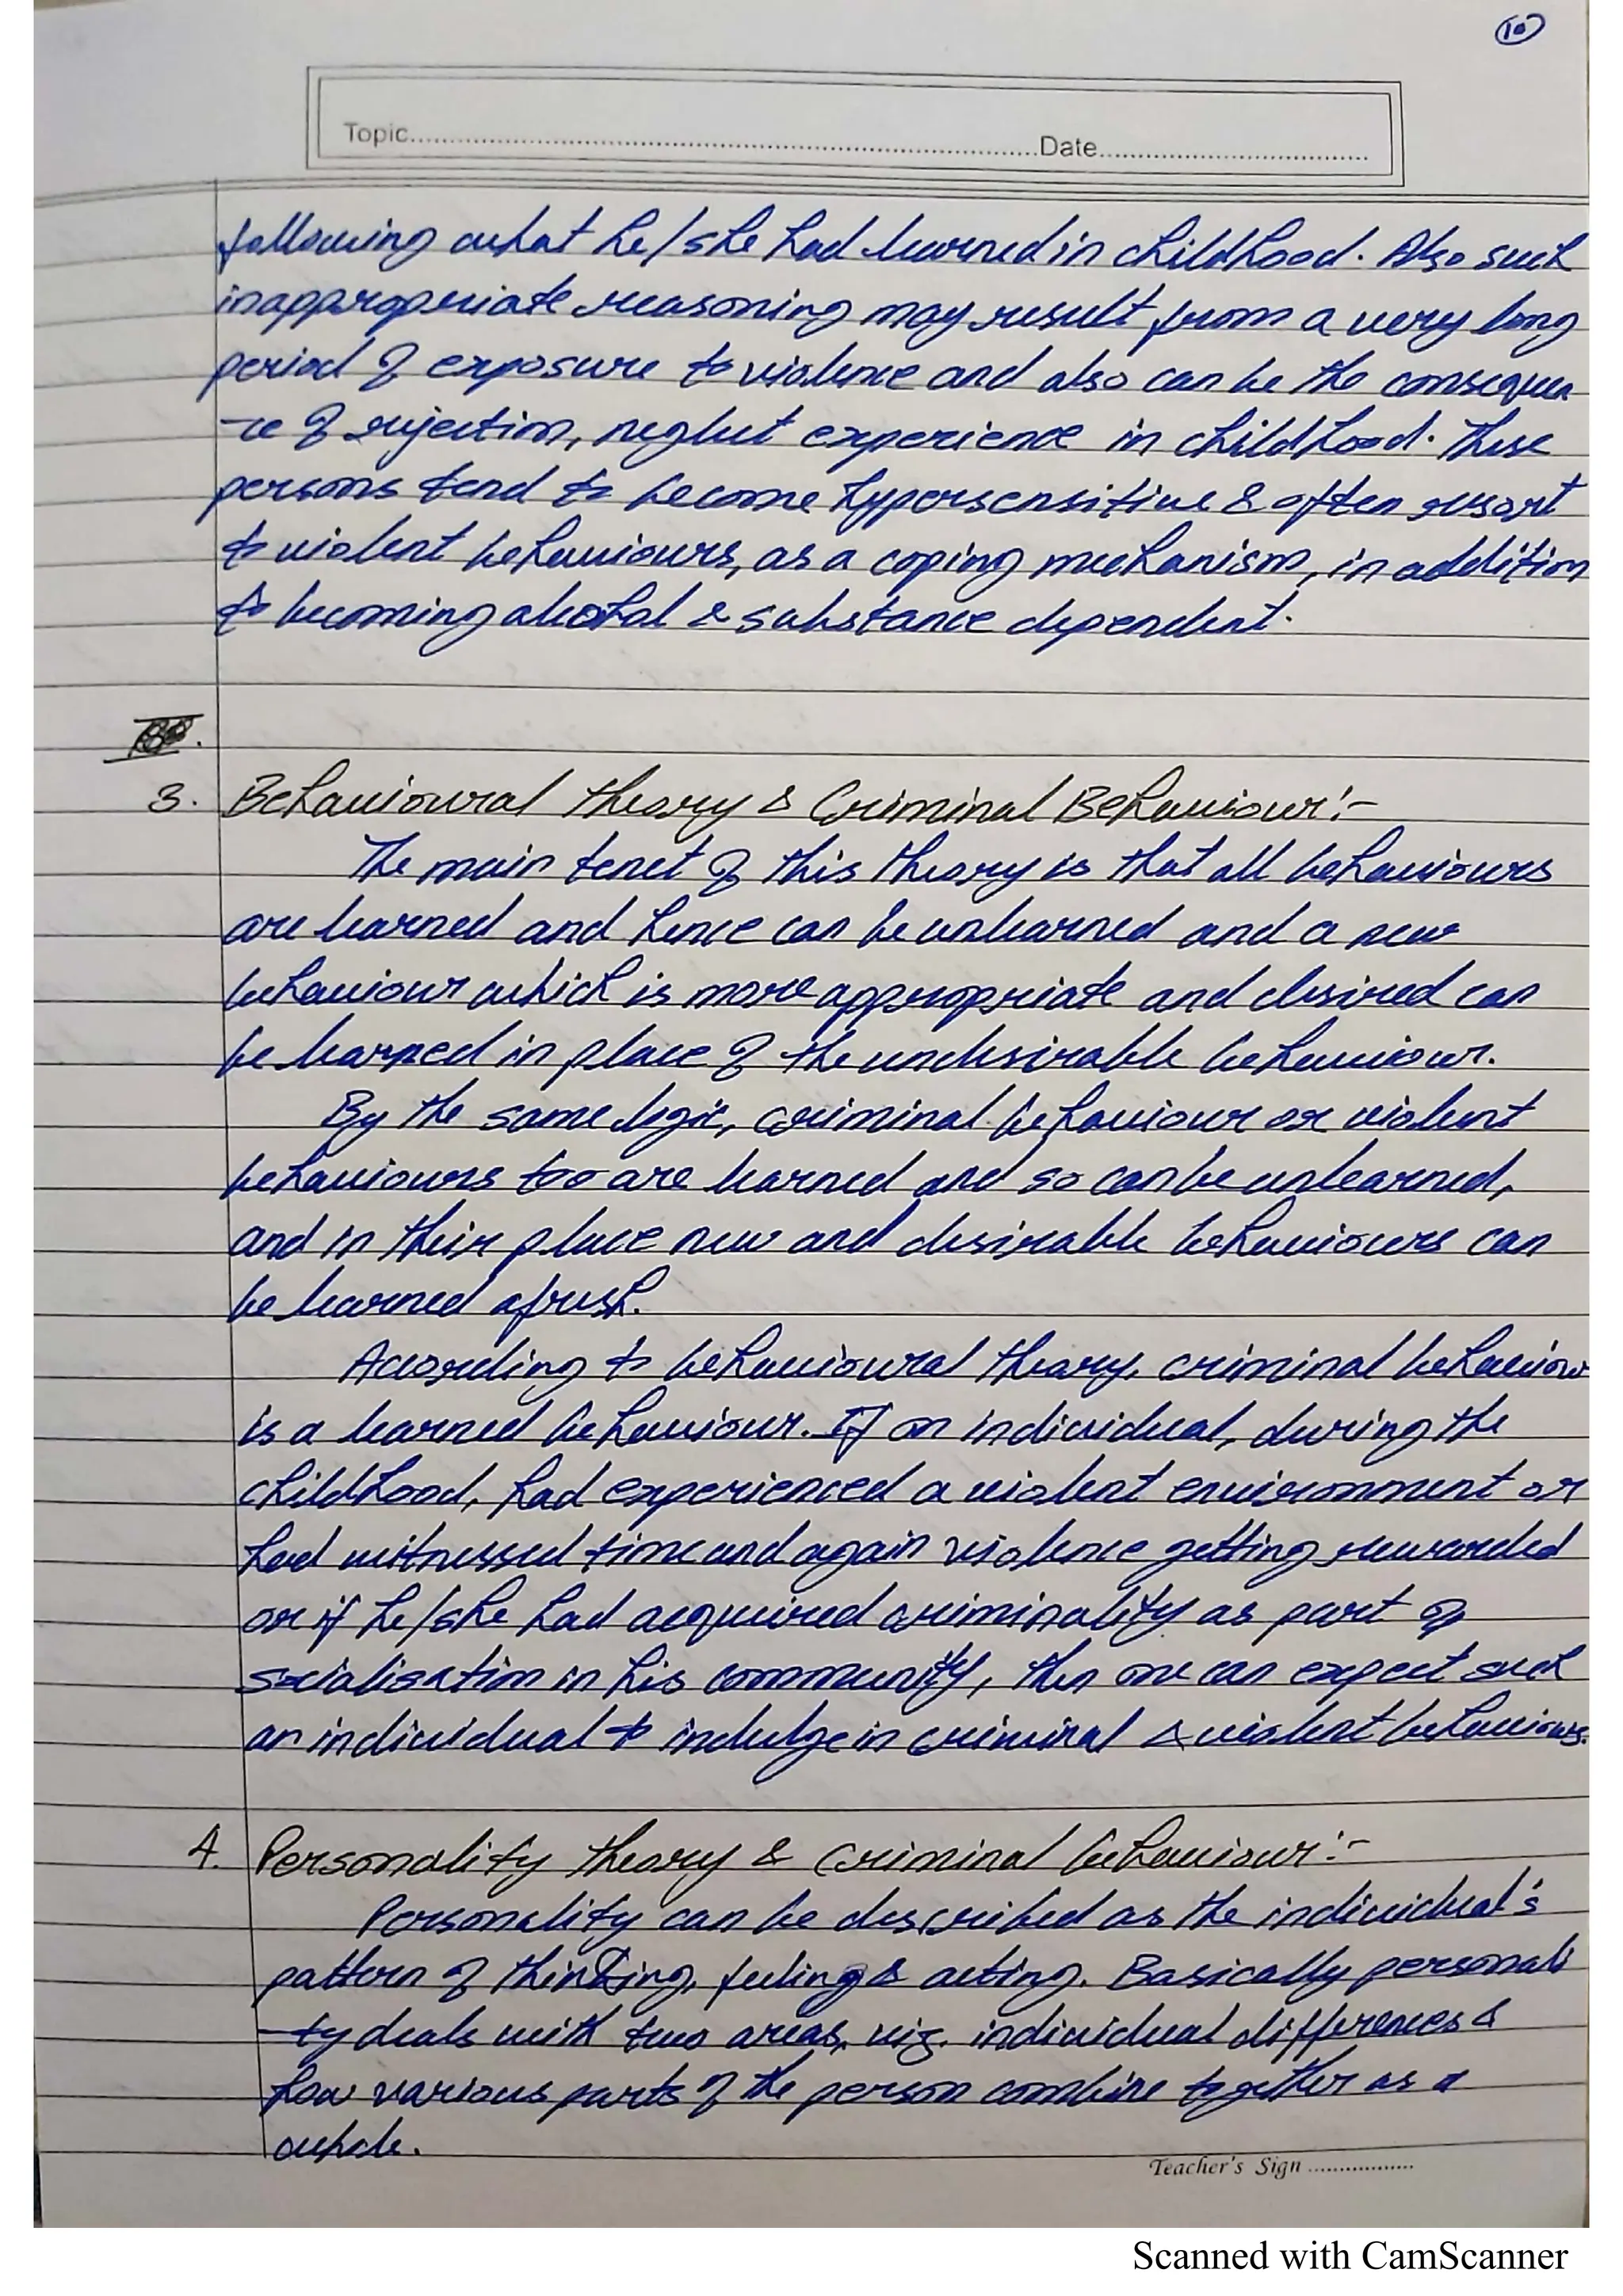 10
Topic..........Date..........
following what he/she had learned in childhood. Also such
inappropriate reasoning may result from a very long
period of exposure to violence and also can be the consequen
-ce of rejection, neglect experience in childhood. These
persons tend to become hypersensitive & often resort
to violent behaviours, as a coping mechanism, in addition
to becoming alcohol & substance dependent.
3. Behavioural theory & Criminal Behaviour:-
The main tenet of this theory is that all behaviours
are learned and hence can be unlearned and a new
behaviour which is more appropriate and desired can
be learned in place of the undesirable behaviour.
By the same logic, criminal behaviour or violent
behaviours too are learned and so can be unlearned,
and in their place new and desirable behaviours can
be learned afresh.
According to behavioural theory, criminal behaviour
is a learned behaviour. If an individual, during the
childhood, had experienced a violent environment or
had witnessed time and again violence getting rewarded
or if he/she had acquired criminality as part of
socialisation in his community, then one can expect such
an individual to indulge in criminal & violent behaviours.
4. Personality theory & Criminal behaviour:-
Personality can be described as the individual's
pattern of thinking, feeling & acting. Basically personali
-ty deals with two areas, viz. individual differences &
how various parts of the person combine together as a
whole.
Teacher's Sign ..........
Scanned with CamScanner